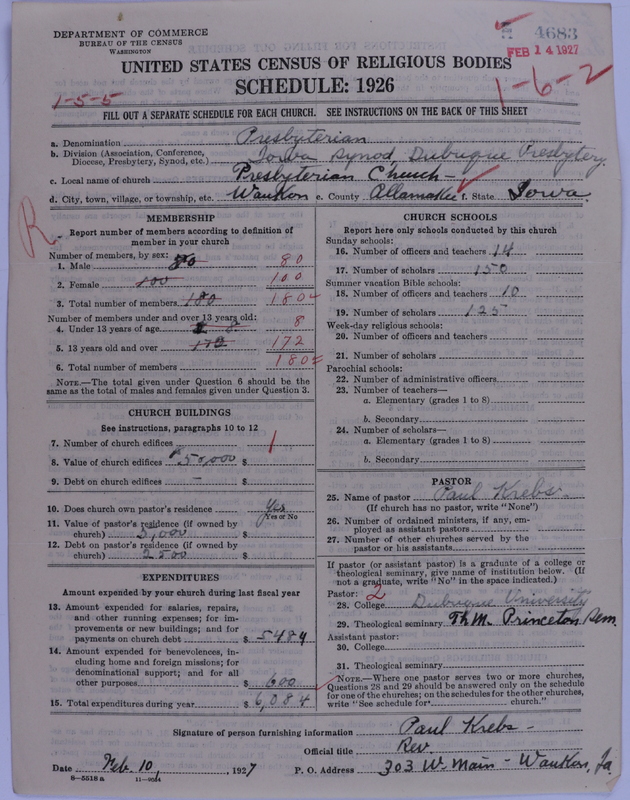 DEPARTMENT OF COMMERCE
BUREAU OF THE CENSUS
WASHINGTON
4683
FEB 14 1927
UNITED STATES CENSUS OF RELIGIOUS BODIES
SCHEDULE: 1926
1-5-5
1-6-2
FILL OUT A SEPARATE SCHEDULE FOR EACH CHURCH. SEE INSTRUCTIONS ON THE BACK OF THIS SHEET
a. Denomination Presbyterian
b. Division (Association, Conference, Diocese, Presbytery, Synod, etc.) Iowa Synod, Dubuque Presbytery
c. Local name of church Presbyterian Church
d. City, town, village, or township, etc. Waukon e. County Allamakee f. State Iowa
R
MEMBERSHIP
Report number of members according to definition of
member in your church
Number of members, by sex:
1. Male 80 80
2. Female 100 100
3. Total number of members 180 180
Number of members under and over 13 years old:
4. Under 13 years of age 8 8
5. 13 years old and over 172 172
6. Total number of members 180
NOTE.—The total given under Question 6 should be the
same as the total of males and females given under Question 3.
CHURCH BUILDINGS
See instructions, paragraphs 10 to 12
7. Number of church edifices 1
8. Value of church edifices 50,000 $
9. Debt on church edifices — $
10. Does church own pastor's residence Yes
Yes or No
11. Value of pastor's residence (if owned by
church) 5,000 $
12. Debt on pastor's residence (if owned by
church) 2500 $
EXPENDITURES
Amount expended by your church during last fiscal year
13. Amount expended for salaries, repairs,
and other running expenses; for im-
provements or new buildings; and for
payments on church debt $ 5484
14. Amount expended for benevolences, in-
cluding home and foreign missions; for
denominational support; and for all
other purposes $ 600
15. Total expenditures during year $ 6,084
CHURCH SCHOOLS
Report here only schools conducted by this church
Sunday schools:
16. Number of officers and teachers 14
17. Number of scholars 150
Summer vacation Bible schools:
18. Number of officers and teachers 10
19. Number of scholars 125
Week-day religious schools:
20. Number of officers and teachers
21. Number of scholars
Parochial schools:
22. Number of administrative officers
23. Number of teachers—
a. Elementary (grades 1 to 8)
b. Secondary
24. Number of scholars—
a. Elementary (grades 1 to 8)
b. Secondary
PASTOR
25. Name of pastor Paul Krebs
(If church has no pastor, write "None")
26. Number of ordained ministers, if any, em-
ployed as assistant pastors
27. Number of other churches served by the
pastor or his assistants
If pastor (or assistant pastor) is a graduate of a college or
theological seminary, give name of institution below. (If
not a graduate, write "No" in the space indicated.)
Pastor: 2
28. College Dubuque University
29. Theological seminary Th.M. Princeton Sem.
Assistant pastor:
30. College
31. Theological seminary
NOTE.—Where one pastor serves two or more churches,
Questions 28 and 29 should be answered only on the schedule
for one of the churches; on the schedules for the other churches,
write "See schedule for church."
Signature of person furnishing information Paul Krebs
Official title Rev.
Date Feb. 10, 1927 P. O. Address 303 W. Main - Waukon, Ia.
8-5518 a 11-9034